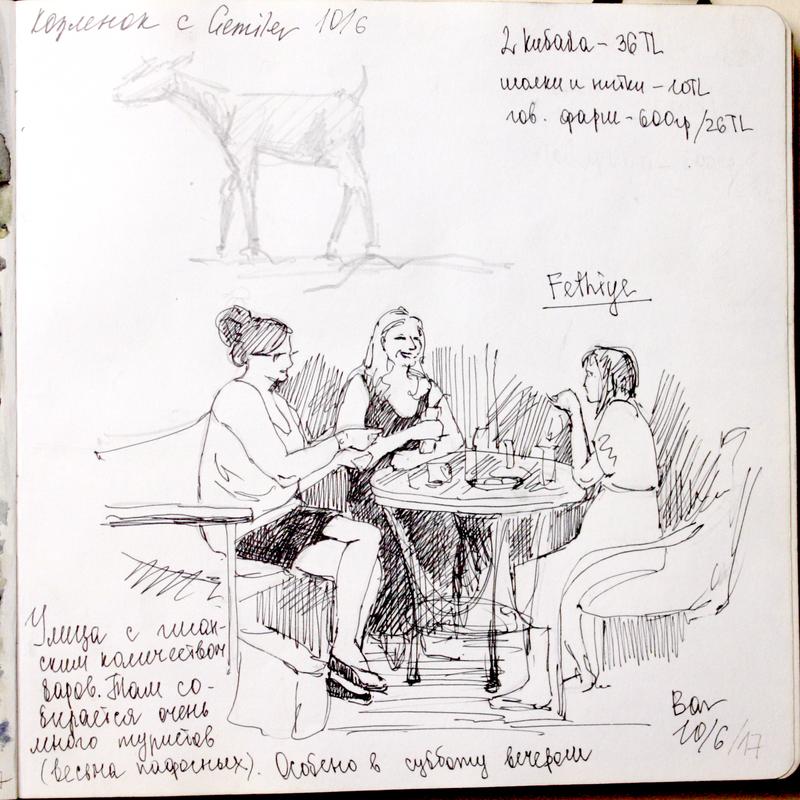 Козленок с Gemiler 10/6
2 кибаба - 36TL
иголки и нитки - 10TL
гов. фарш - 600гр/26TL
Fethiye
Улица с гиган-
ским количеством
баров. Там со-
бирается очень
много туристов
(весьма пафосных). Особено в субботу вечером
Bar
10/6/17